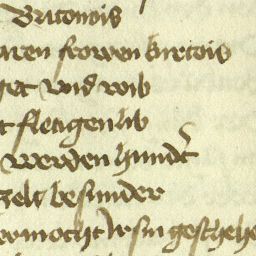 Britonois
aren frowen kurtois
get vnd wib
t fletigen lib
werden hundt
zelt besunder
vermocht Ir sin geschehe